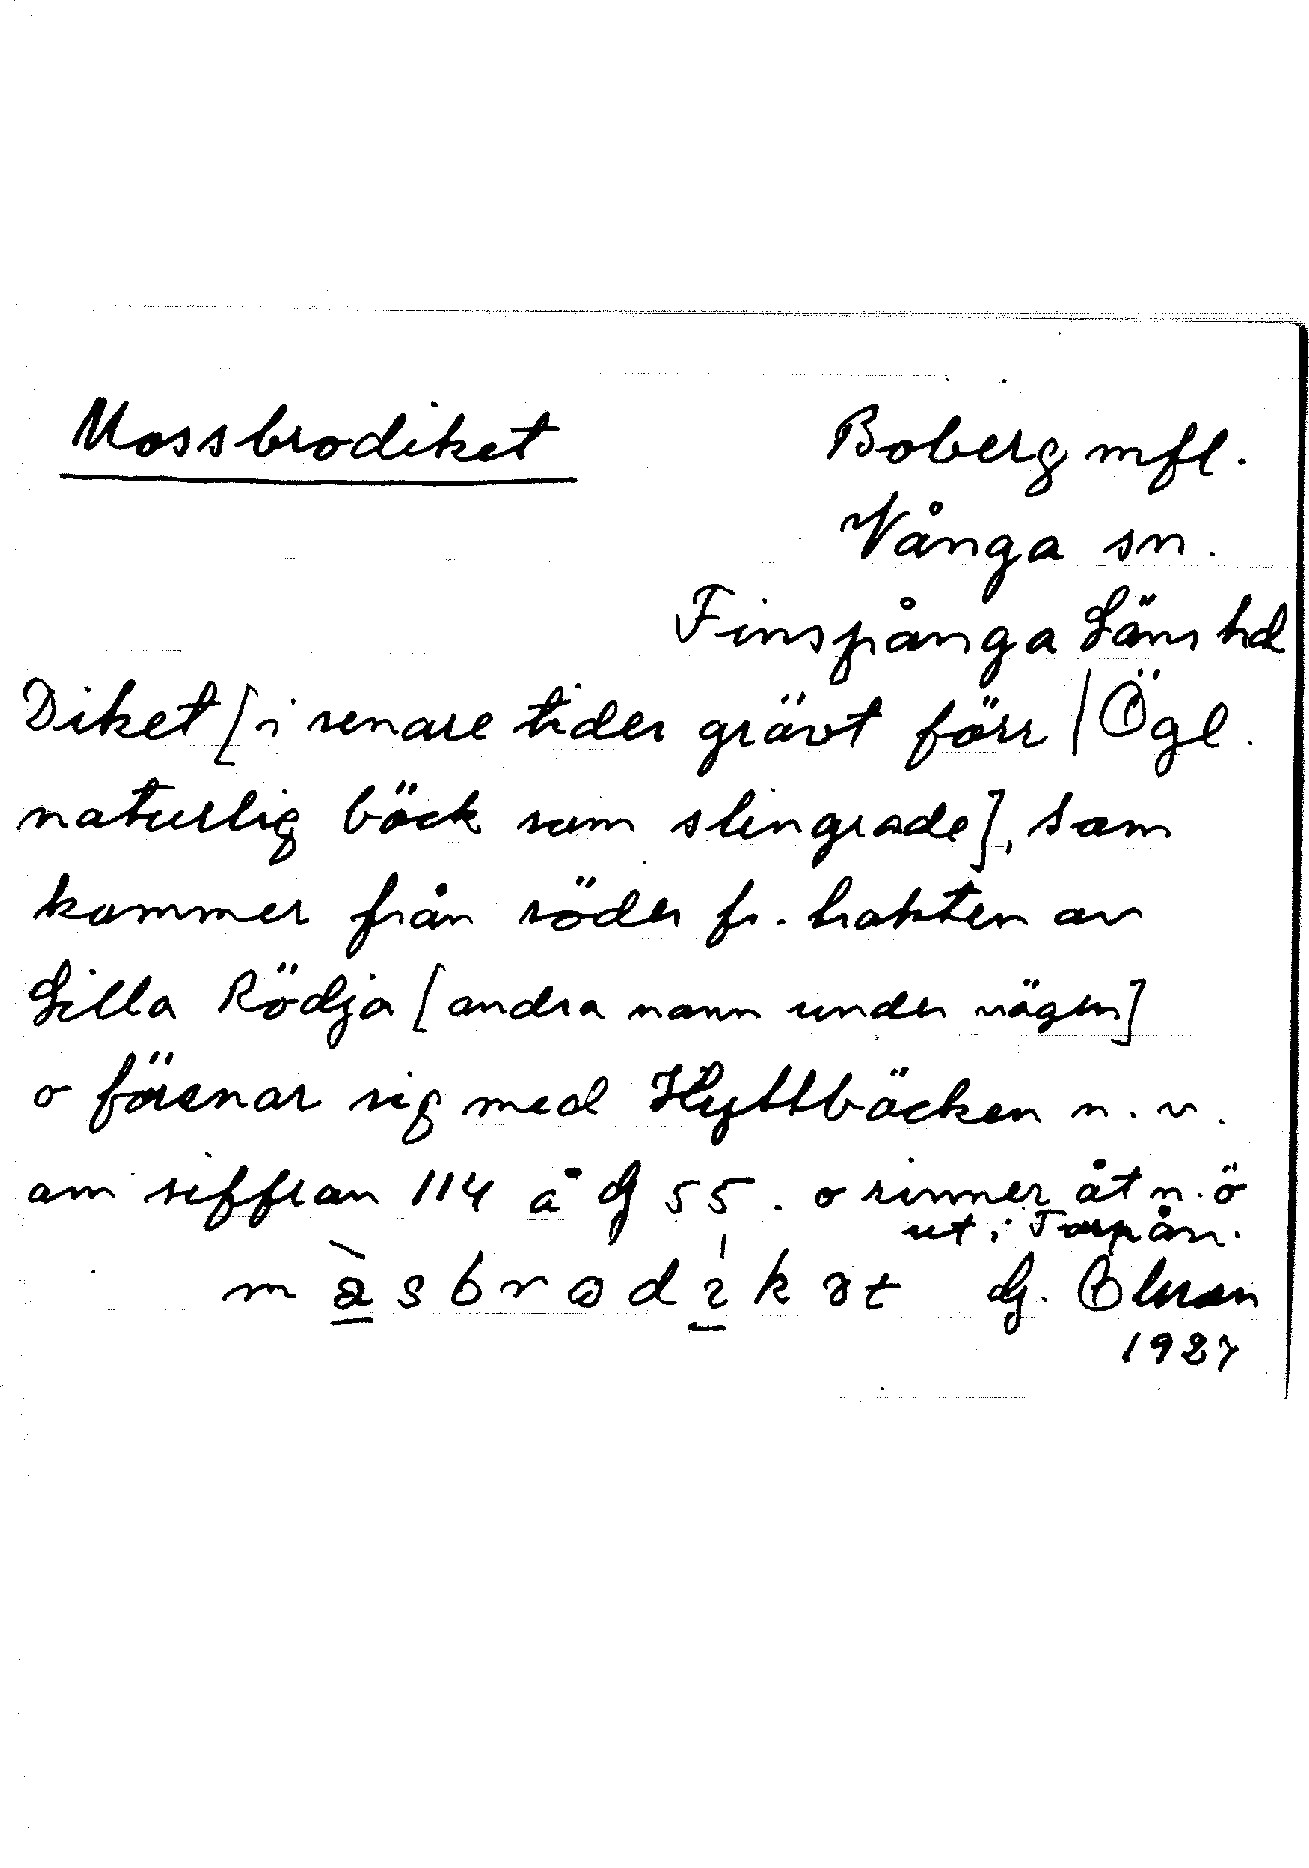 Mossbrodiket
Boberg mfl.
Vånga sn.
Finspånga Läns hd
Diket [i senare tider grävt förr / Ögl.
naturlig bäck som slingrade], som
kommer från söder fr. trakten av
Lilla Rödja [andra namn under vägen]
o förenar sig med Hyttbäcken n.v.
om siffran 114 å G 55. o rinner åt n.ö
ut i Torpån.
m a s b r o d i k ə t G.
1927